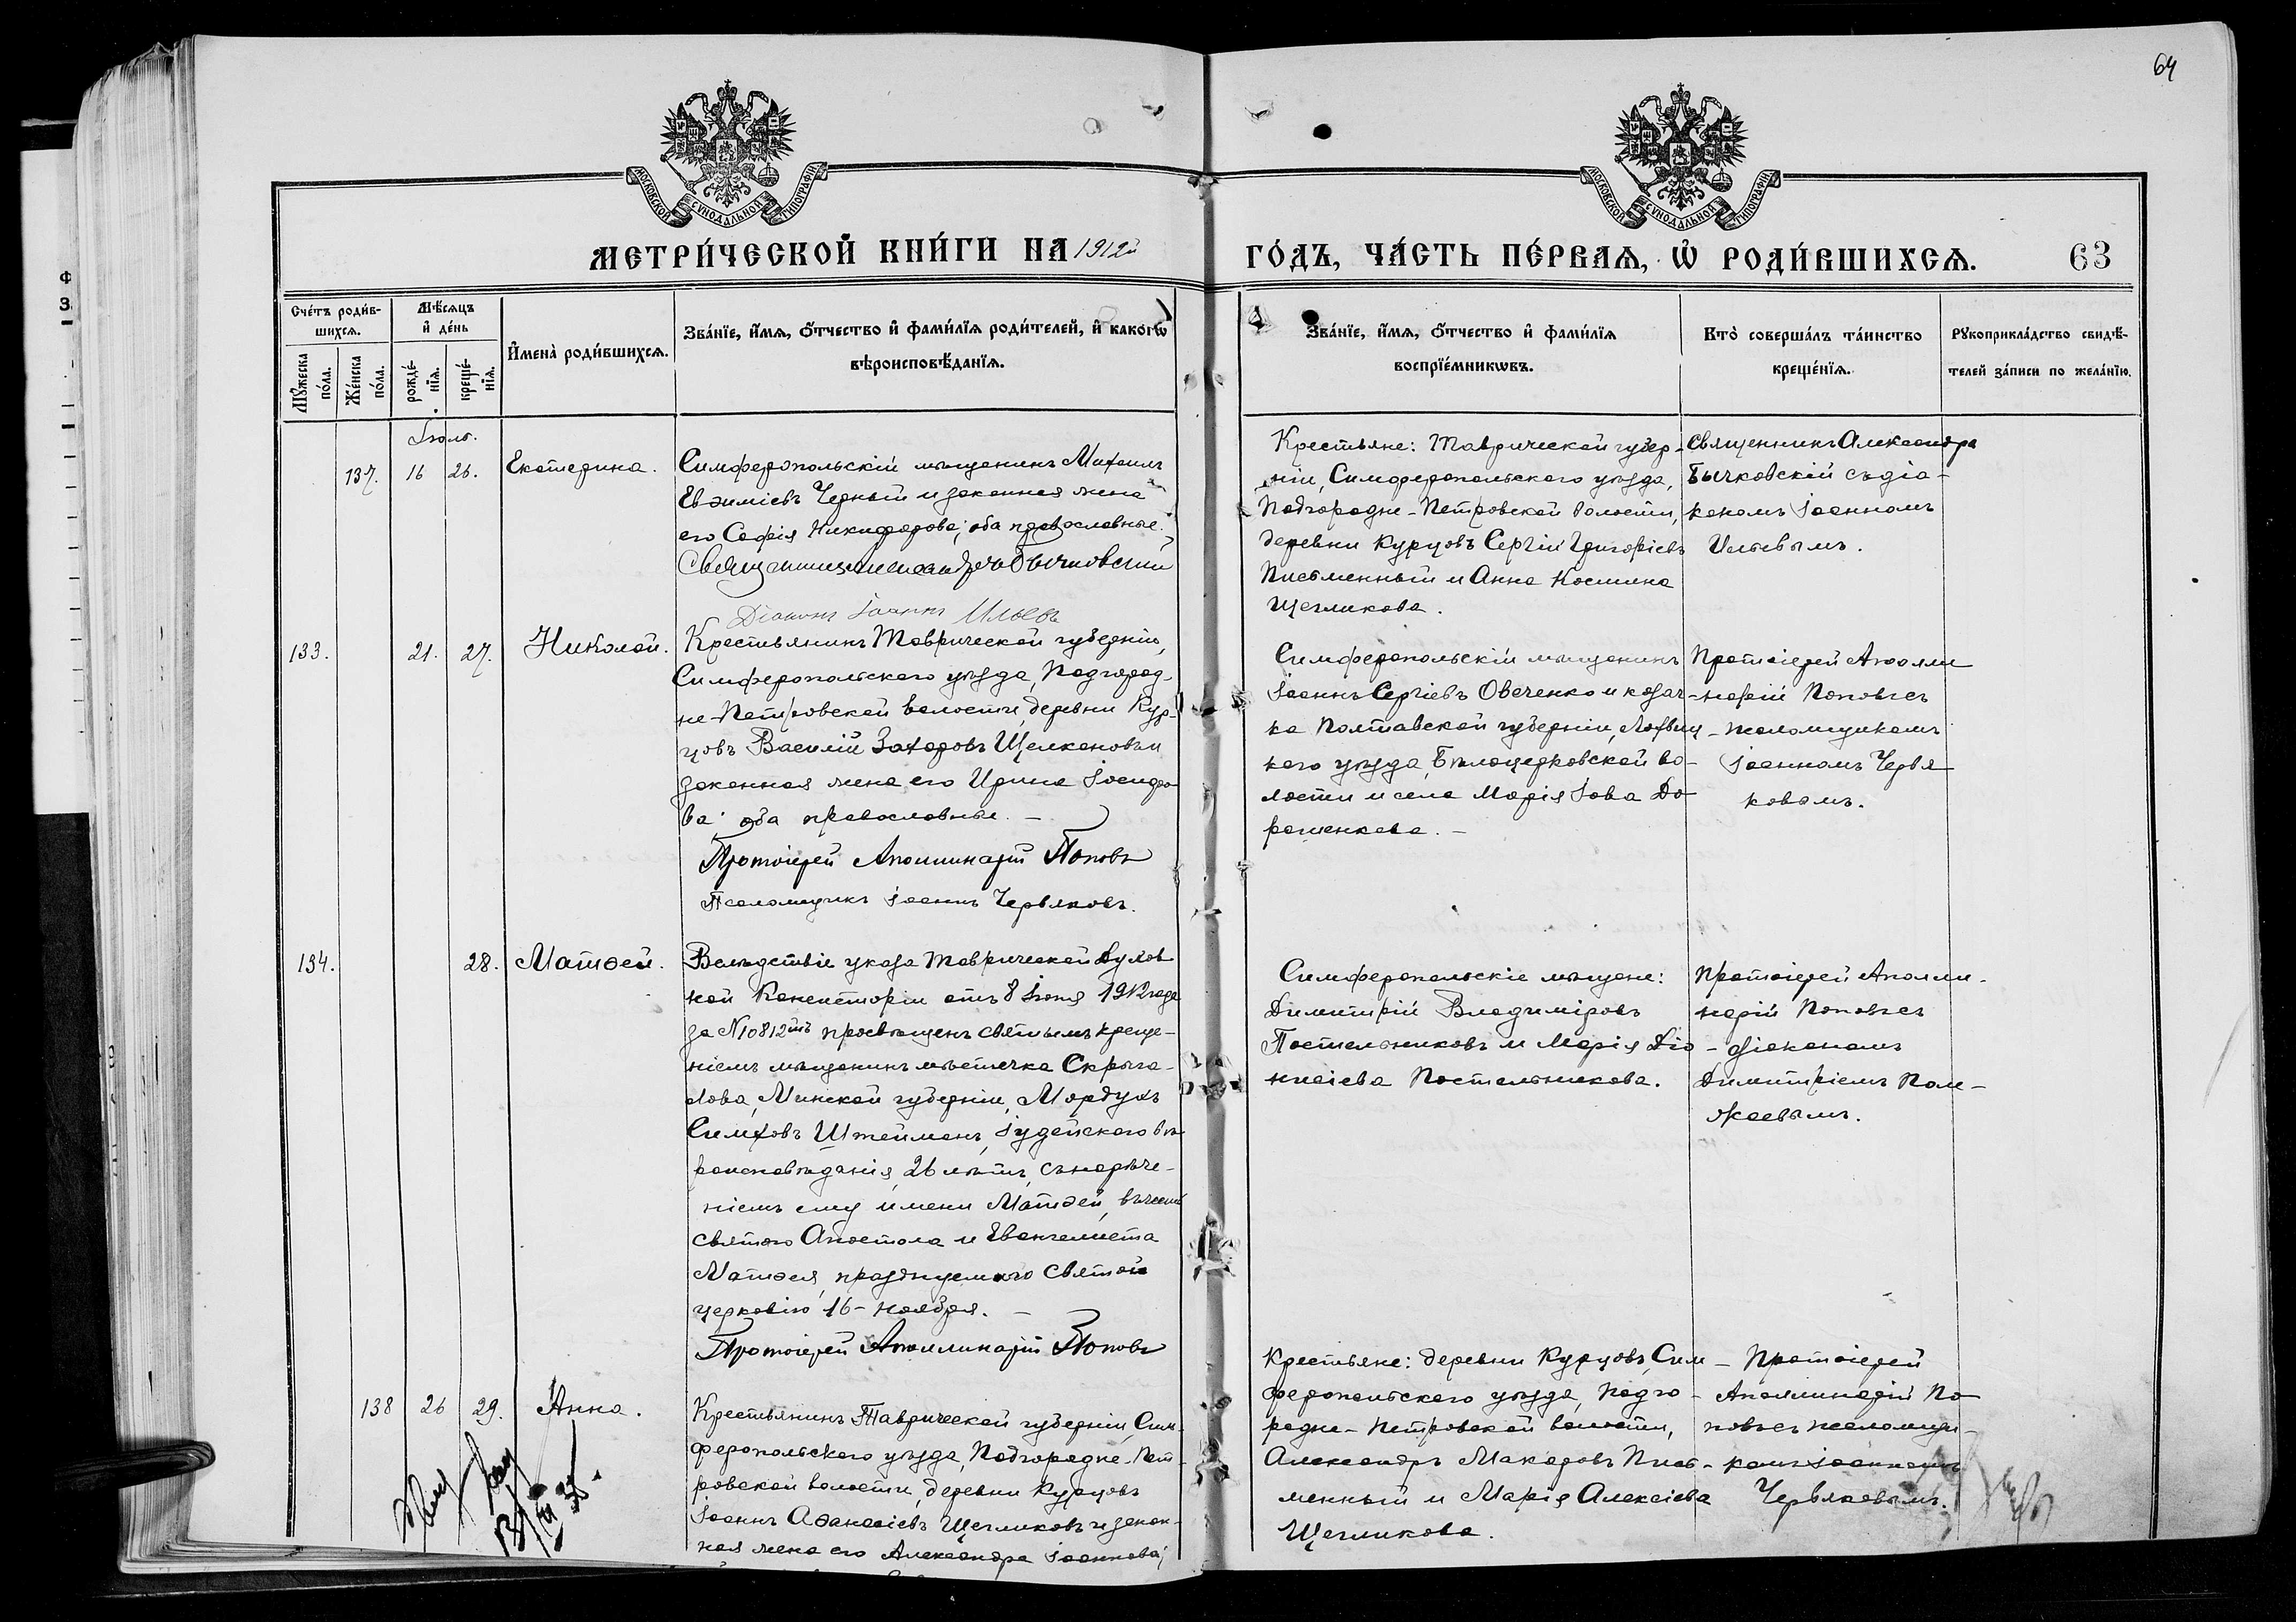 64
МОСКОВСКОЙ СѴНОДАЛЬНОЙ ТИПОГРАФІИ
МОСКОВСКОЙ СѴНОДАЛЬНОЙ ТИПОГРАФІИ
МЕТРИ́ЧЕСКОЙ КНИ́ГИ НА 1912й
ГО́ДЪ, ЧА́СТЬ ПЕ́РВАѦ, Ѡ҆ РОДИ́ВШИХСѦ.
63
Сче́тъ роди́в-
шихсѧ.
Мѣ́сѧцъ
и҆ де́нь
Мꙋ́жеска
по́ла.
Же́нска
по́ла.
рожде́-
нїѧ.
креще́-
нїѧ.
И҆мена̀ роди́вшихсѧ.
Зва́нїе, и҆́мѧ, ѻ҆́тчество и҆ фами́лїѧ роди́телей, и҆ како́гѡ
вѣроисповѣ́данїѧ.
Зва́нїе, и҆́мѧ, ѻ҆́тчество и҆ фами́лїѧ
воспрїе́мникѡвъ.
Кто̀ соверша́лъ та́инство
креще́нїѧ.
Рꙋкоприкла́дство свидѣ́-
телей за́писи по жела́нїю.
Іюль.
137.
16
26.
Екатерина.
Симферопольскій мѣщанинъ Михаилъ
Евѳиміевъ Черный и законная жена
его Софія Никифорова; оба православные.
Священникъ Александръ Бычковскій
Діаконъ Іоаннъ Ильевъ
Крестьяне: Таврической губер-
ніи, Симферопольскаго уѣзда,
Подгородне-Петровской волости,
деревни Курцовъ Сергій Григоріевъ
Письменный и Анна Космина
Щегликова.
Священникъ Александръ
Бычковскій съ діа-
кономъ Іоанномъ
Ильевымъ.
133.
21.
27.
Николай.
Крестьянинъ Таврической губерніи,
Симферопольскаго уѣзда, Подгород-
не-Петровской волости, деревни Кур-
цовъ Василій Захаровъ Щелкановъ и
законная жена его Ирина Іосифо-
ва; оба православные. –
Протоіерей Аполлинарій Поповъ
Псаломщикъ Іоаннъ Червяковъ.
Симферопольскій мѣщанинъ
Іоаннъ Сергіевъ Овеченко и козач-
ка Полтавской губерніи, Лохвиц-
каго уѣзда, Бѣлоцерковской во-
лости и села Марія Іова До-
рошенкова. –
Протоіерей Аполли-
нарій Поповъ съ
псаломщикомъ
Іоанномъ Червя-
ковымъ.
134.
28.
Матѳей.
Вслѣдствіе указа Таврической Духов-
ной Консисторіи отъ 8 Іюня 1912 года
за № 10812мъ просвѣщенъ святымъ креще-
ніемъ мѣщанинъ мѣстечка Скрыга-
лова, Минской губерніи, Мордухъ
Симховъ Штейманъ, Іудейскаго вѣ-
роисповѣданія, 26 лѣтъ, съ нарече-
ніемъ ему имени Матѳей, въ честь
святаго Апостола и Евангелиста
Матѳея, празднуемаго Святой
церковію 16-ноября. –
Протоіерей Аполлинарій Поповъ
Симферопольскіе мѣщане:
Димитрій Владиміровъ
Постельниковъ и Марія Діо-
нисіева Постельникова.
Протоіерей Аполли-
нарій Поповъ съ
діакономъ
Димитріемъ Пол-
жаевымъ.
138
26
29.
Анна.
Крестьянинъ Таврической губерніи, Сим-
феропольскаго уѣзда, Подгородне-Пет-
ровской волости, деревни Курцовъ
Іоаннъ Аѳанасіевъ Щегликовъ и закон-
ная жена его Александра Іоаннова;
Крестьяне: деревни Курцовъ, Сим-
феропольскаго уѣзда, Подго-
родне-Петровской волости,
Александръ Макаровъ Пись-
менный и Марія Алексіева
Щегликова.
Протоіерей
Аполлинарій По-
повъ съ псаломщи-
комъ Іоанномъ
Червяковымъ.